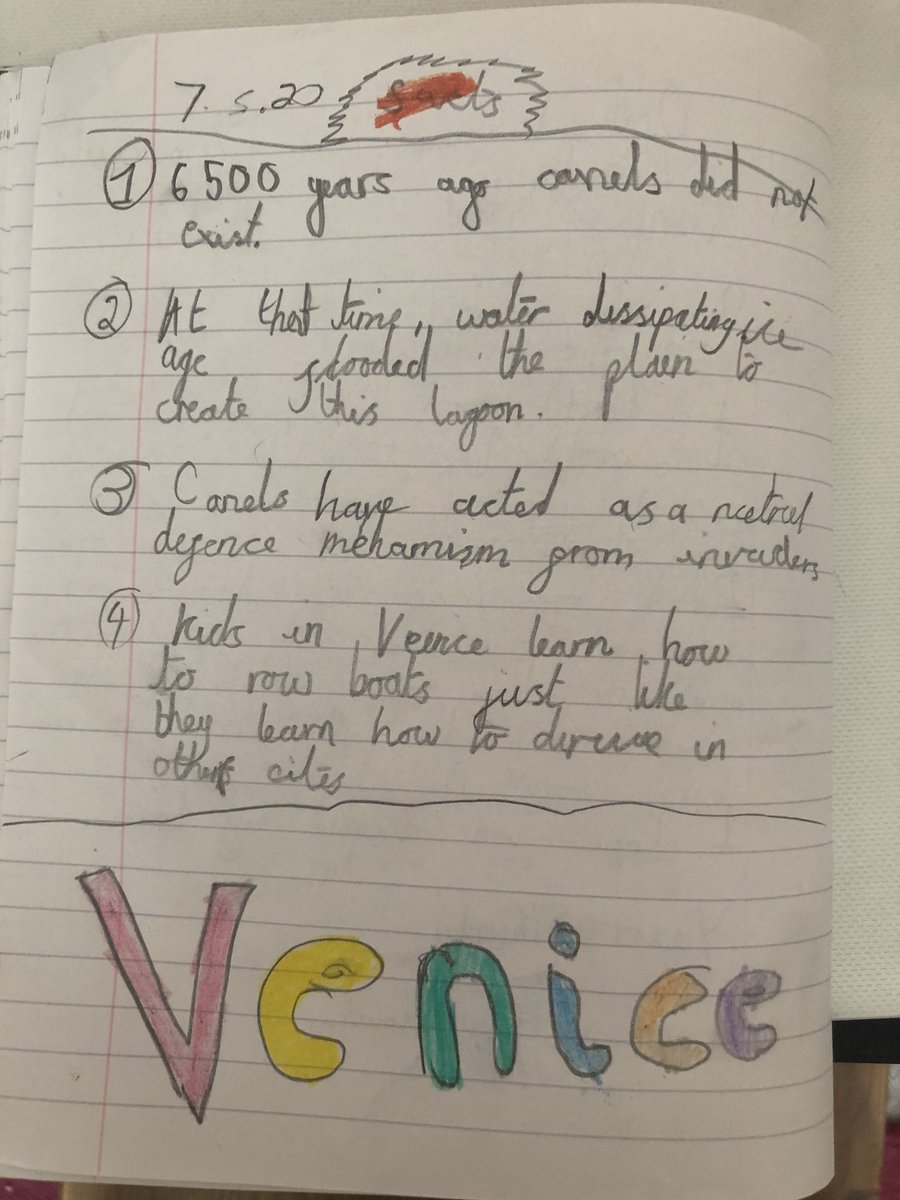 7.5.20 facts
① 6500 years ago canels did not
exist.
② At that time, water dissipeting ice
age flooded the plain to
create this lagoon.
③ Canels have acted as a natral
defence mehamism from invaders
④ Kids in Venice learn how
to row boats just like
they learn how to in
other cites
Venice